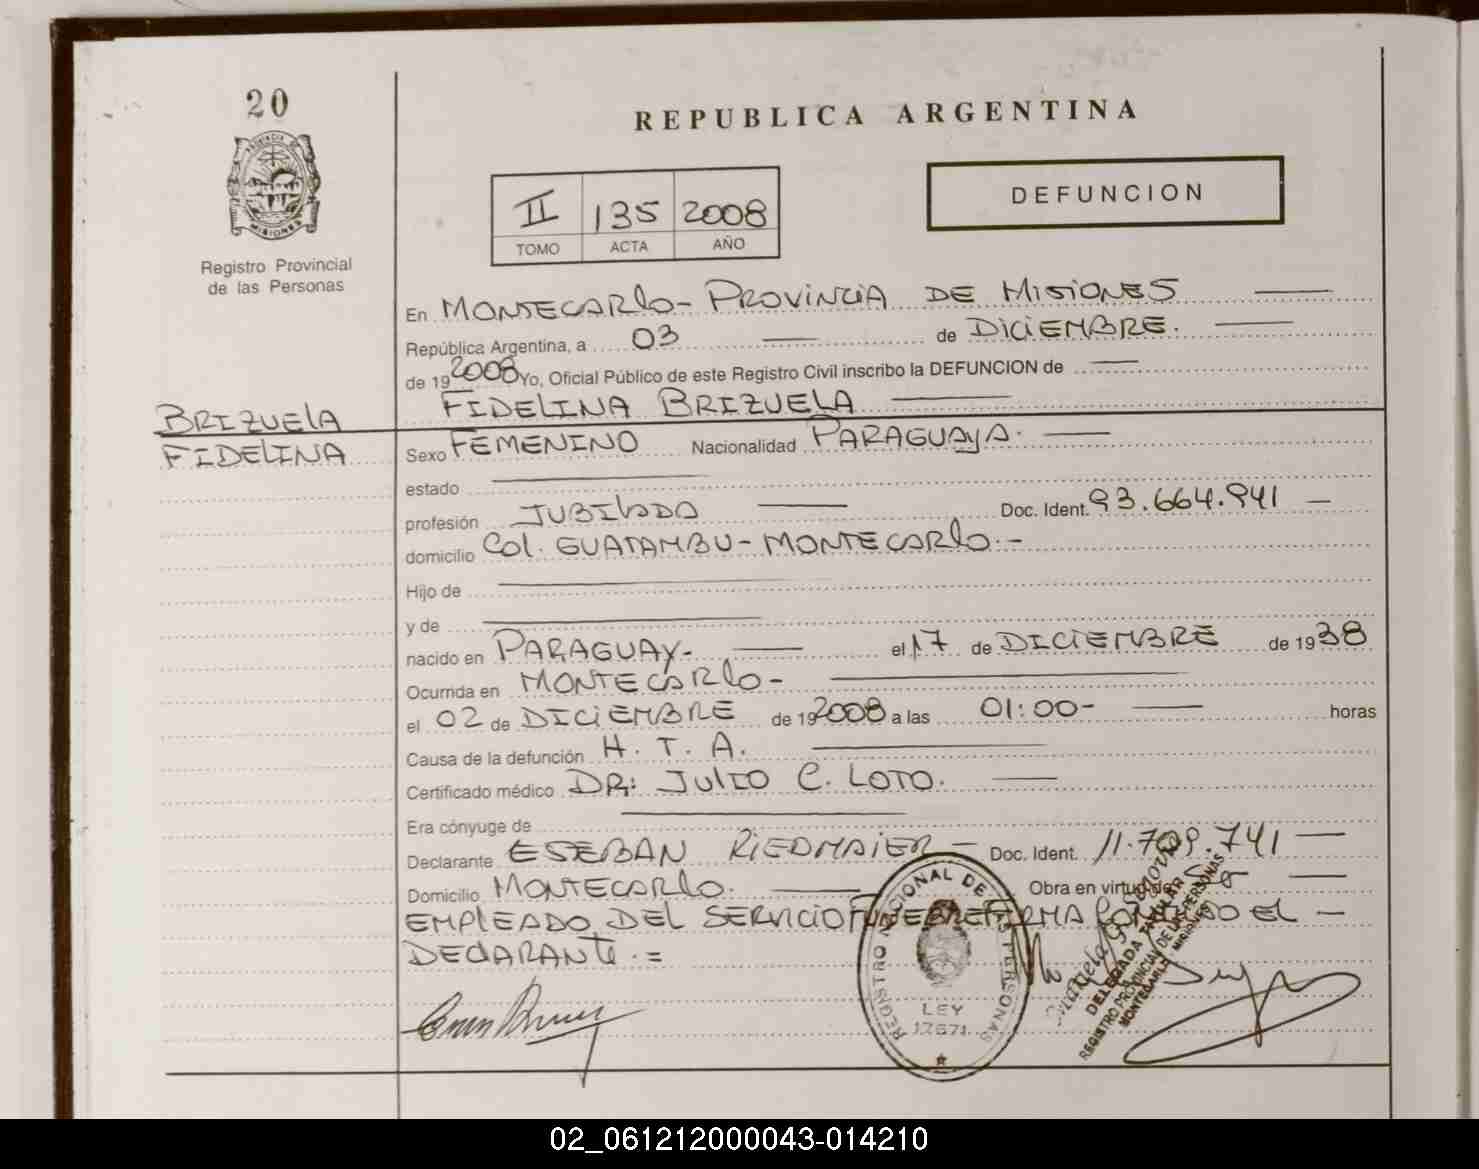 20
PROVINCIA DE
MISIONES
Registro Provincial
de las Personas
REPUBLICA ARGENTINA
DEFUNCION
II 135 2008
TOMO ACTA AÑO
En MONTECARLO - PROVINCIA DE MISIONES
República Argentina, a 03 de DICIEMBRE.
de 19 2008 Yo, Oficial Público de este Registro Civil inscribo la DEFUNCION de
FIDELINA BRIZUELA
BRIZUELA
FIDELINA
Sexo FEMENINO Nacionalidad PARAGUAYA.
estado
profesión JUBILADA Doc. Ident. 93.664.941 -
domicilio Col. GUATAMBU - MONTECARLO.-
Hijo de
y de
nacido en PARAGUAY- el 17 de DICIEMBRE de 1938
Ocurrida en MONTECARLO -
el 02 de DICIEMBRE de 19 2008 a las 01:00- horas
Causa de la defunción H. T. A.
Certificado médico DR: JULIO C. LOTO.
Era cónyuge de
Declarante ESTEBAN RIEDMAIER - Doc. Ident. 11.709.741
Domicilio MONTECARLO. Obra en virtud de
EMPLEADO DEL SERVICIO FUNEBRE FIRMA CONMIGO EL -
DECLARANTE.=
REGISTRO NACIONAL DE LAS PERSONAS
LEY
17671
DELEGADA TITULAR
REGISTRO PROVINCIAL DE LAS PERSONAS
MONTECARLO MISIONES
02_061212000043-014210